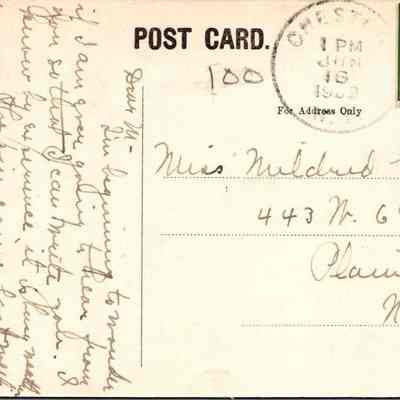 POST CARD.
100
CHESTER
1 PM
JUN
16
For Address Only
Miss Mildred
443 W. 6
Plain
N
Dear M-
I'm beginning to wonder
if I am ever going to hear from
you so that I can write you. I
know by experience it is hay